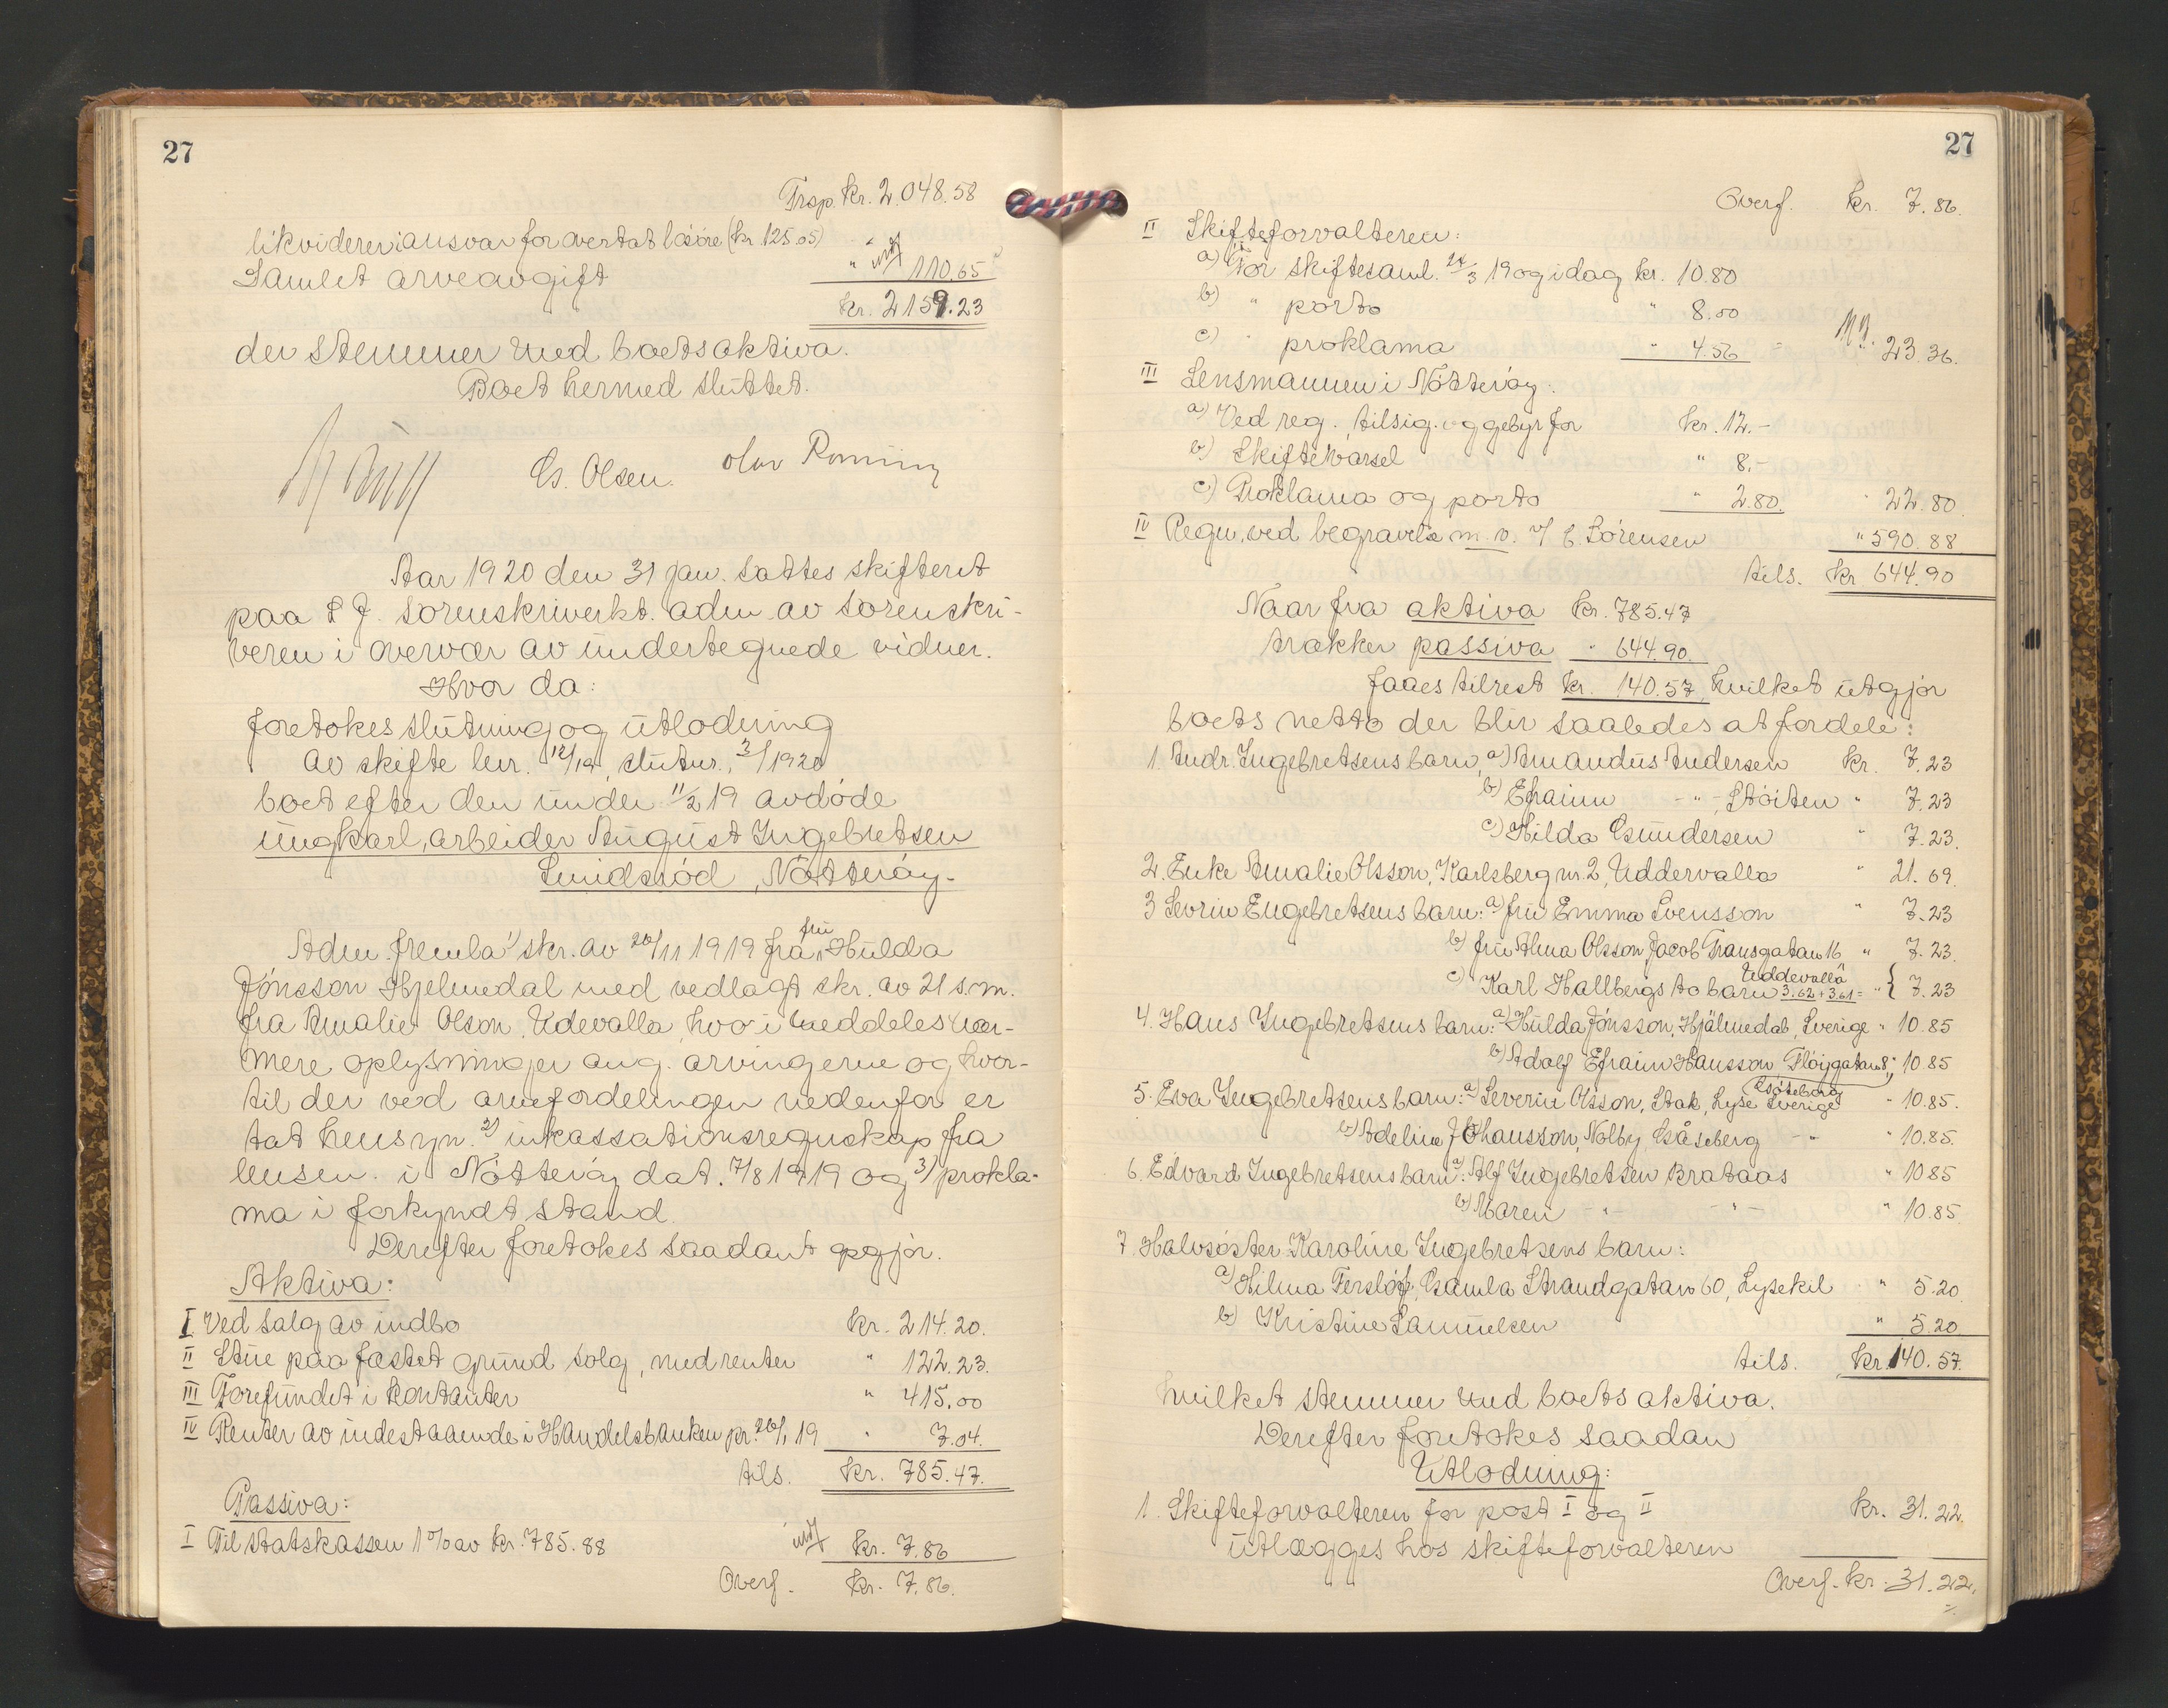 27
Trsp. kr. 2.048.58
likviderer i ansvar for overtat løsøre (kr. 125.05) " "
Samlet arveavgift " 110.65
kr. 2159.23
der stemmer med boets aktiva.
Boet hermed sluttet.
G. Olsen. Olav Ronning
Aar 1920 den 31 jan. sattes skifteret
paa S J. sorenskriverkt. adm. av sorenskri-
veren i overvær av undertegnede vidner.
Hvor da:
foretokes slutning og utlodning
av skifte lnr. 12/19, slutnr. 3/1920
boet efter den under 11/2 19 avdøde
ungkarl, arbeider August Ingebretsen
Smidsrød, Nøtterøy.
Adm. fremla 1) skr. av 26/11 1919 fra fru Hulda
Jónsson Hjelmedal med vedlagt skr. av 21 s.m.
fra Amalie Olson, Udevalla, hvori meddeles nær-
mere oplysninger ang. arvingerne og hvor-
til der ved arvefordelingen nedenfor er
tat hensyn. 2) inkassationsregnskap fra
lensm. i Nøtterøy dat. 7/8 1919 og 3) prokla-
ma i forkyndt stand.
Derefter foretokes saadant opgjør.
Aktiva:
I Ved salg av indbo kr. 214.20.
II Stue paa fæstet grund solg, med renter " 122.23.
III Forefundet i kontanter " 415.00
IV Renter av indestaaende i Handelsbanken pr. 20/1 19 " 7.04.
tils. kr. 785.47.
Passiva:
I Til statskassen 1 % av kr. 785.88 kr. 7.86
Overf. kr. 7.86.
27
Overf. kr. 7.86.
II Skifteforvalteren:
a) For skiftesaml. 24/3 19 og idag kr. 10.80
b) " porto " 8.00
c) " proklama " 4.56 " 23.36.
III Lensmannen i Nøtterøy:
a) Ved reg., tilsig. og gebyr for kr. 12.-
b) Skiftevarsel " 8.-
c) Proklama og porto " 2.80. " 22.80.
IV Regn. ved begravelse m.v. v/ E. Sørensen " 590.88
tils. kr 644.90
Naar fra aktiva kr. 785.47
trækker passiva " 644.90.
faaes tilrest kr. 140.57, hvilket utgjør
boets netto der blir saaledes at fordele:
1. Andr. Ingebretsens barn, a) Amandus Andersen kr. 7.23
b) Efraim -"- Støiten " 7.23
c) Hilda Gundersen " 7.23.
2. Enke Amalie Olsson, Karlsberg nr. 2, Uddervalla " 21.69.
3 Sevrin Engebretsens barn: a) fru Emma Svensson " 7.23
b) fru Alma Olsson, Jacob Transgatan 16 " 7.23.
Uddevalla
c) Karl Hallbergs to barn 3.62 + 3.61 = " { 7.23
4. Hans Ingebretsens barn: a) Hulda Jónsson, Hjälmedal, Sverige " 10.85
b) Adolf Efraim Hansson Fløigatan 8, " 10.85
Gøteborg
5. Eva Ingebretsens barn: a) Severin Olsson, Stak, Lyse Sverige " 10.85.
b) Adelina Johansson, Nolby, Gåseberg -"- " 10.85.
6. Edvard Ingebretsens barn: a) Alf Ingebretsen Brataas " 10.85
b) Maren -"- -"- " 10.85.
7. Halvsøster Karoline Ingebretsens barn:
a) Hilma Ferslöf, Gamla Strandgatan 60, Lysekil " 5.20.
b) Kristine Samuelsen " 5.20
tils. kr. 140.57.
hvilket stemmer med boets aktiva.
Derefter foretokes saadan
Utlodning:
1. Skifteforvalteren for post I og II kr. 31.22.
utlægges hos skifteforvalteren
Overf. kr. 31.22.